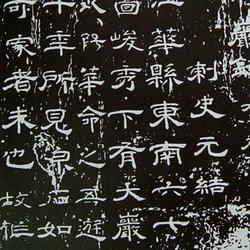 刺史元結
江華縣東南六七
面峻秀下有大巖
以陽華命之吾遊
十年所見泉石如
可家者未也故作